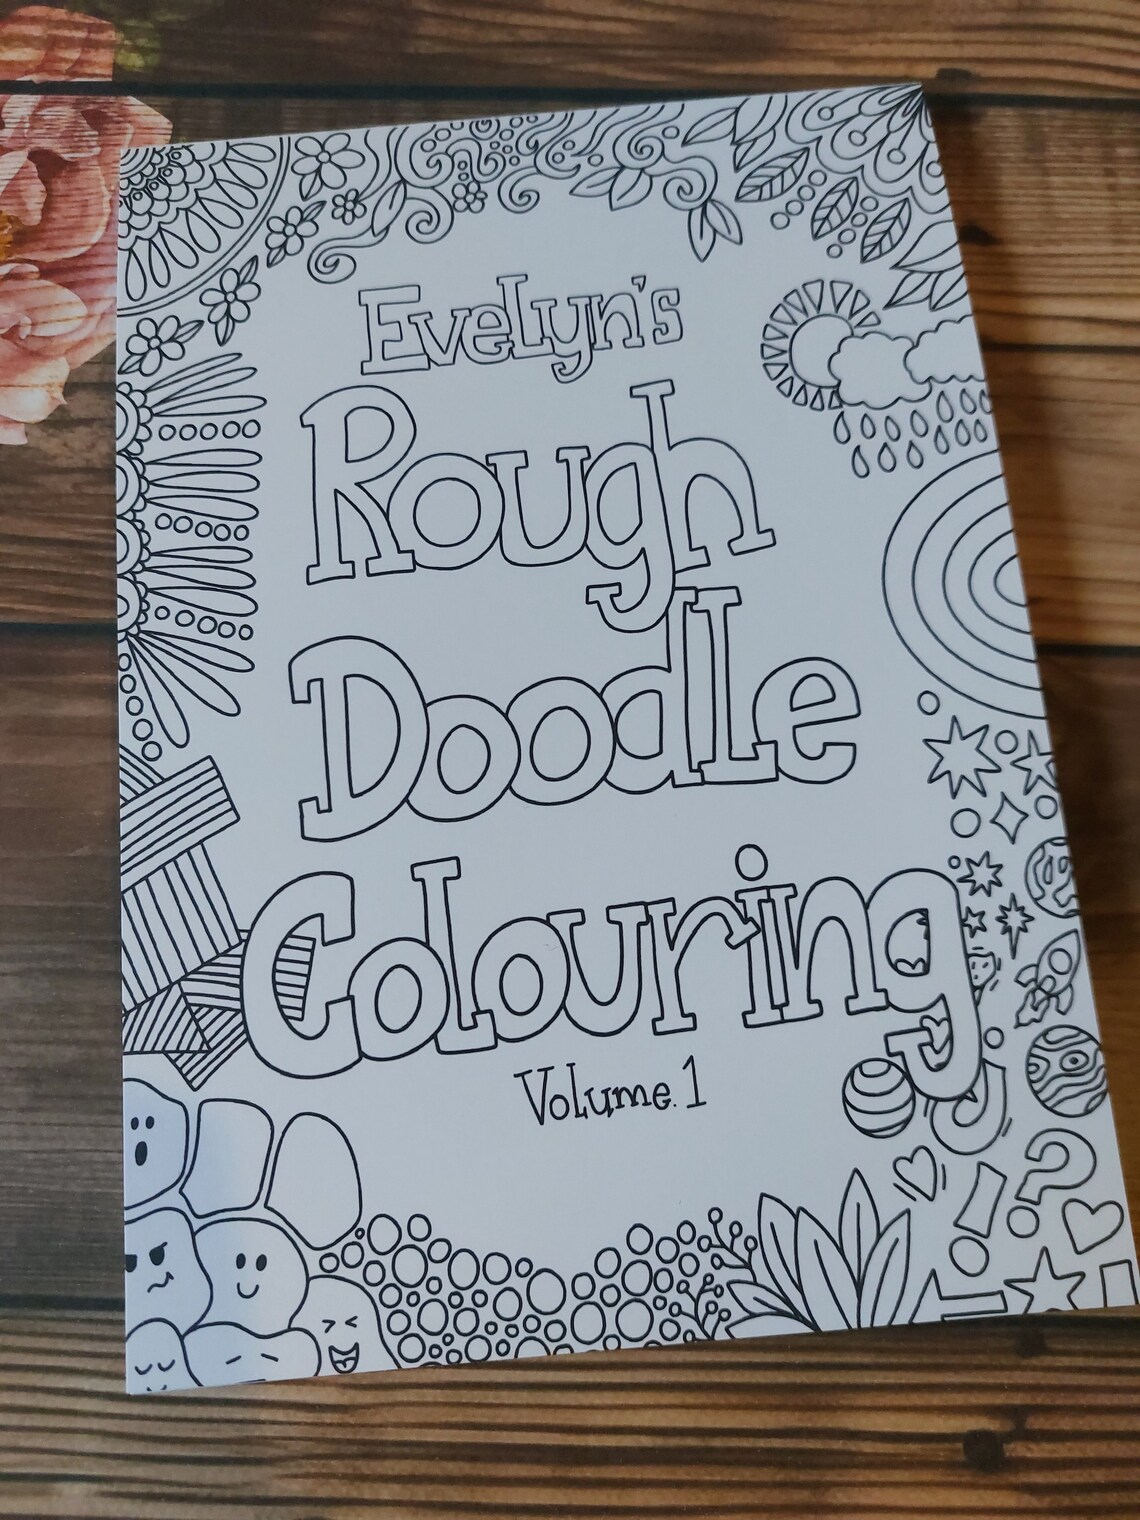 Evelyn's
Rough
Doodle
Colouring
Volume. 1